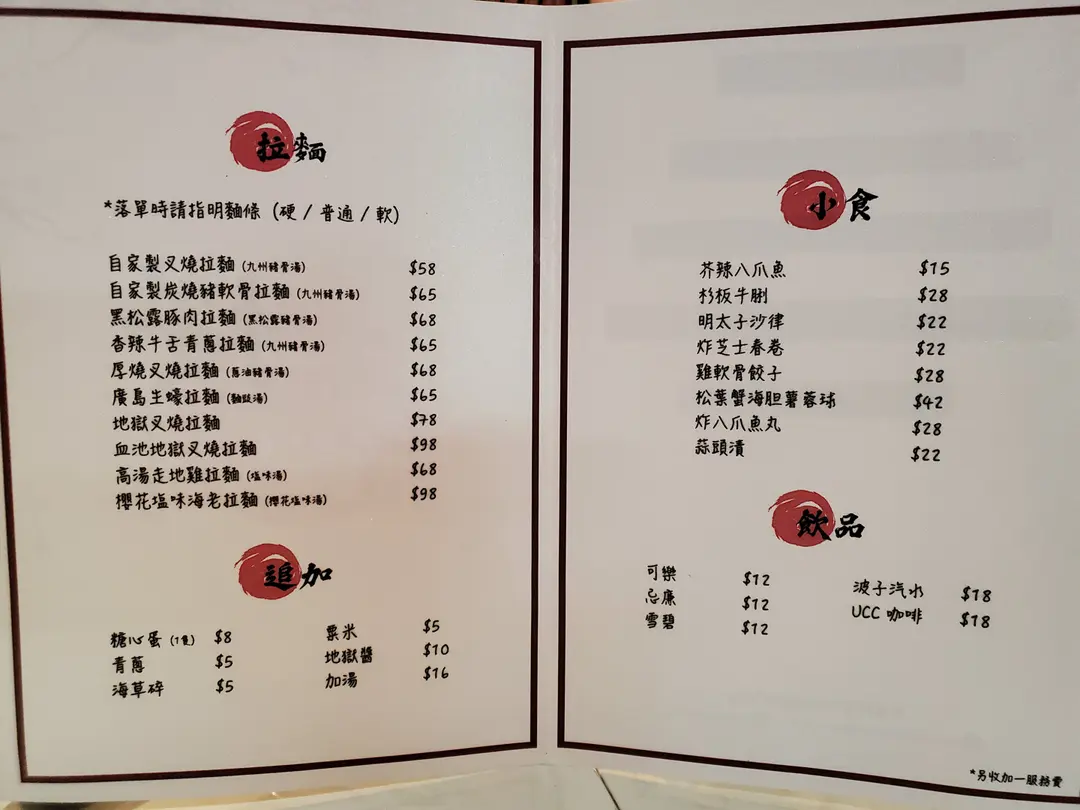 拉麵
*落單時請指明麵條 (硬 / 普通 / 軟)
自家製叉燒拉麵 (九州豬骨湯) $58
自家製炭燒豬軟骨拉麵 (九州豬骨湯) $65
黑松露豚肉拉麵 (黑松露豬骨湯) $68
香辣牛舌青蔥拉麵 (九州豬骨湯) $65
厚燒叉燒拉麵 (蔥油豬骨湯) $68
廣島生蠔拉麵 (麵豉湯) $65
地獄叉燒拉麵 $78
血池地獄叉燒拉麵 $98
高湯走地雞拉麵 (塩味湯) $68
櫻花塩味海老拉麵 (櫻花塩味湯) $98
追加
糖心蛋 (1隻) $8
青蔥 $5
海草碎 $5
粟米 $5
地獄醬 $10
加湯 $16
小食
芥辣八爪魚 $15
杉板牛脷 $28
明太子沙律 $22
炸芝士春卷 $22
雞軟骨餃子 $28
松葉蟹海胆薯蓉球 $42
炸八爪魚丸 $28
蒜頭漬 $22
飲品
可樂 $12
忌廉 $12
雪碧 $12
波子汽水 $18
UCC 咖啡 $18
*另收加一服務費